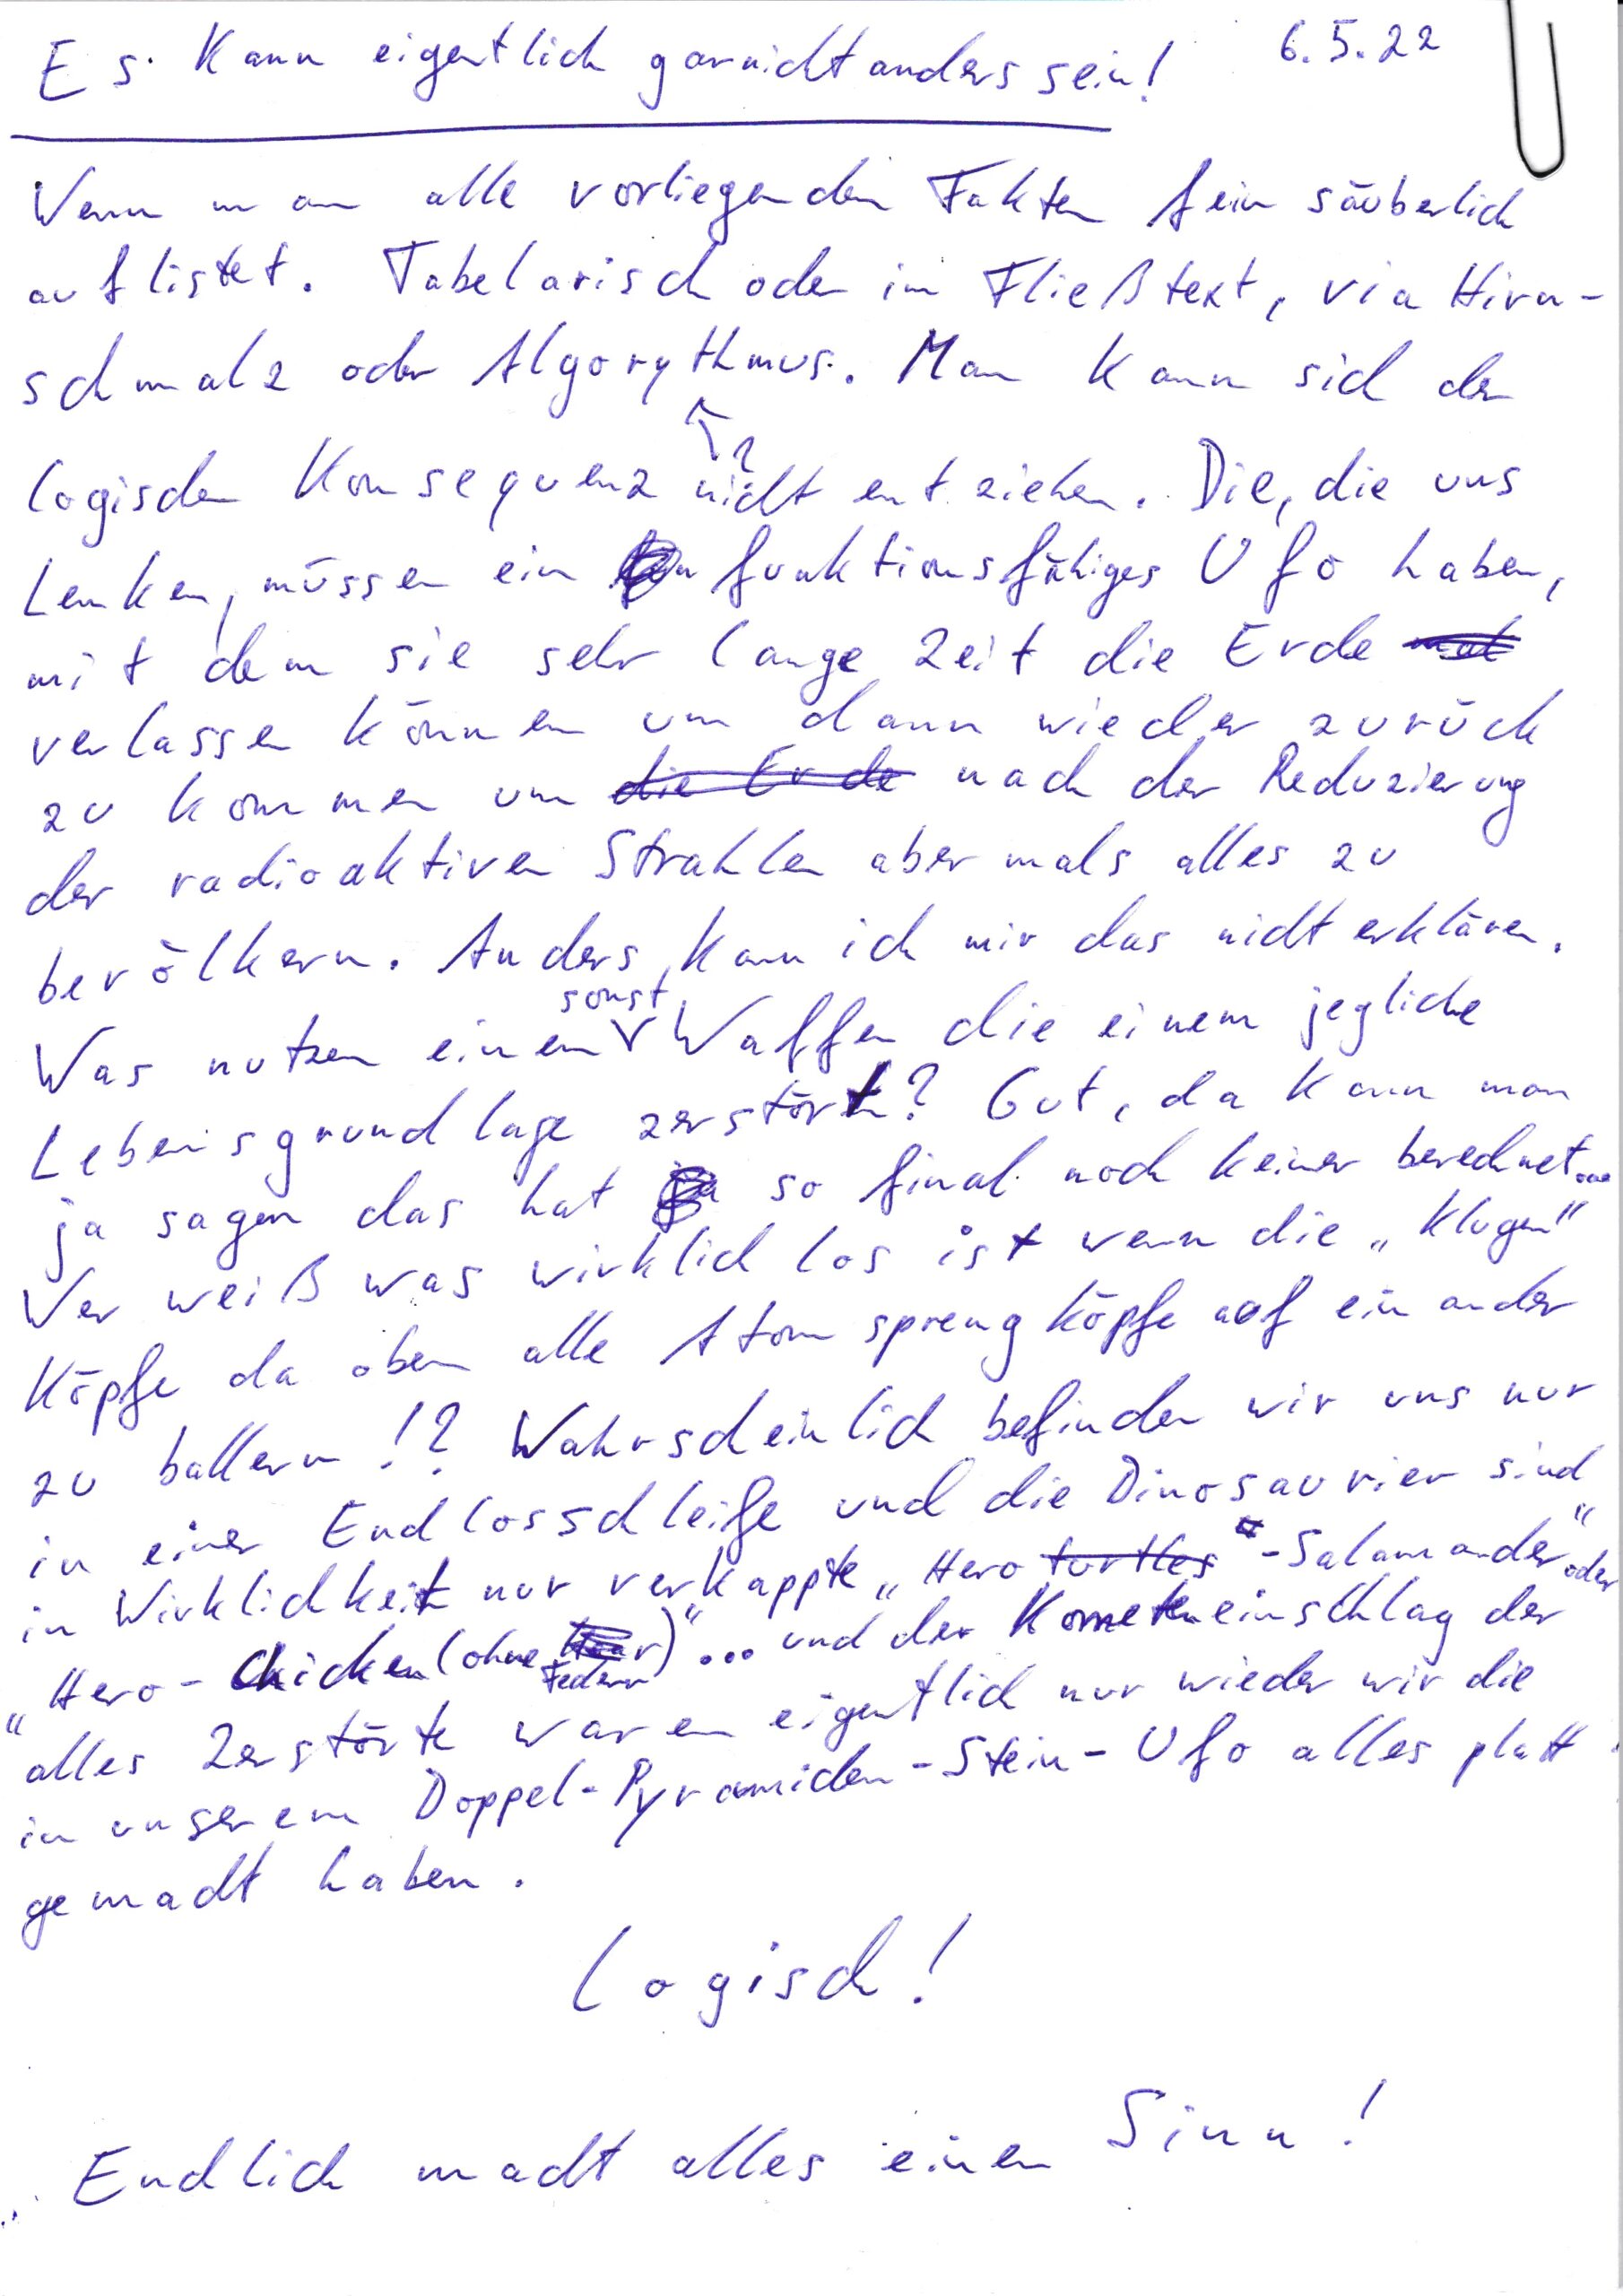 Es kann eigentlich garnicht anders sein! 6.5.22
Wenn man alle vorliegenden Fakten fein säuberlich
auflistet. Tabelarisch oder im Fließtext, via Hirn-
schmalz oder Algorythmus. Man kann sich der
?
logischen Konsequenz nicht entziehen. Die, die uns
Lenken, müssen ein funktionsfähiges Ufo haben,
mit dem sie sehr lange Zeit die Erde
verlassen können um dann wieder zurück
zu kommen um die Erde nach der Reduzierung
der radioaktiven Strahlen abermals alles zu
bevölkern. Anders kann ich mir das nicht erklären.
sonst
Was nutzen einem Waffen die einem jegliche
Lebensgrundlage zerstört? Gut, da kann man
ja sagen das hat so final noch keiner berechnet...
Wer weiß was wirklich los ist wenn die „Klugen"
Köpfe da oben alle Atomsprengköpfe auf einander
zu ballern!? Wahrscheinlich befinden wir uns nur
in einer Endlosschleife und die Dinosaurier sind
in Wirklichkeit nur verkappte „Hero turtles -Salamander" oder
„Hero-Chicken (ohne Federn)"... und der Kometeneinschlag der
alles Zerstörte waren eigentlich nur wieder wir die
in unserem Doppel-Pyramiden-Stein-Ufo alles platt
gemacht haben.
Logisch!
Endlich macht alles einen Sinn!